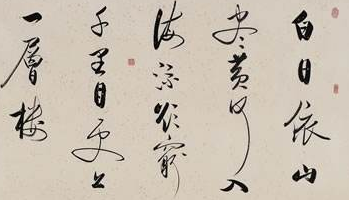 白日依山
尽黄河入
海流欲穷
千里目更上
一层楼